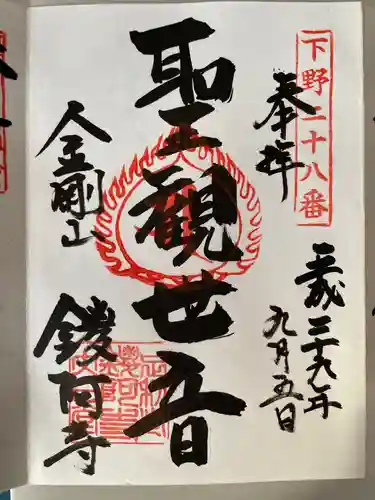 下野二十八番
奉拝
平成二十九年
九月五日
聖観世音
金剛山
鑁阿寺